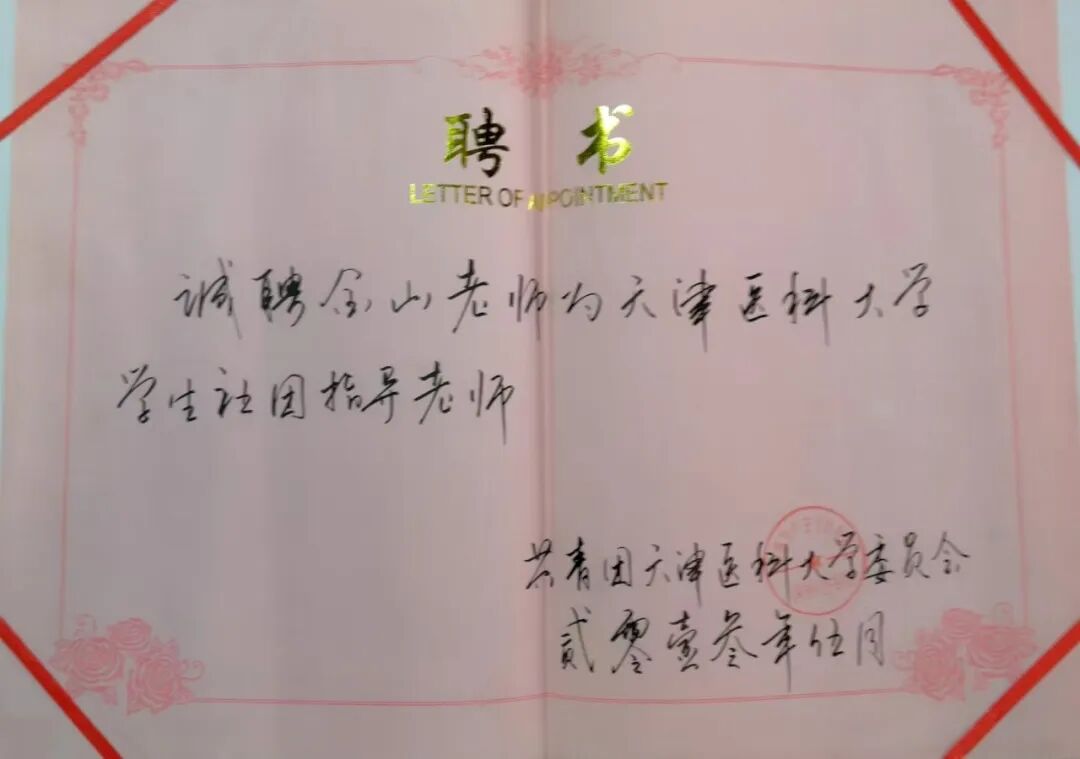 聘书
LETTER OF APPOINTMENT
诚聘金山老师为天津医科大学
学生社团指导老师
共青团天津医科大学委员会
贰零壹叁年伍月